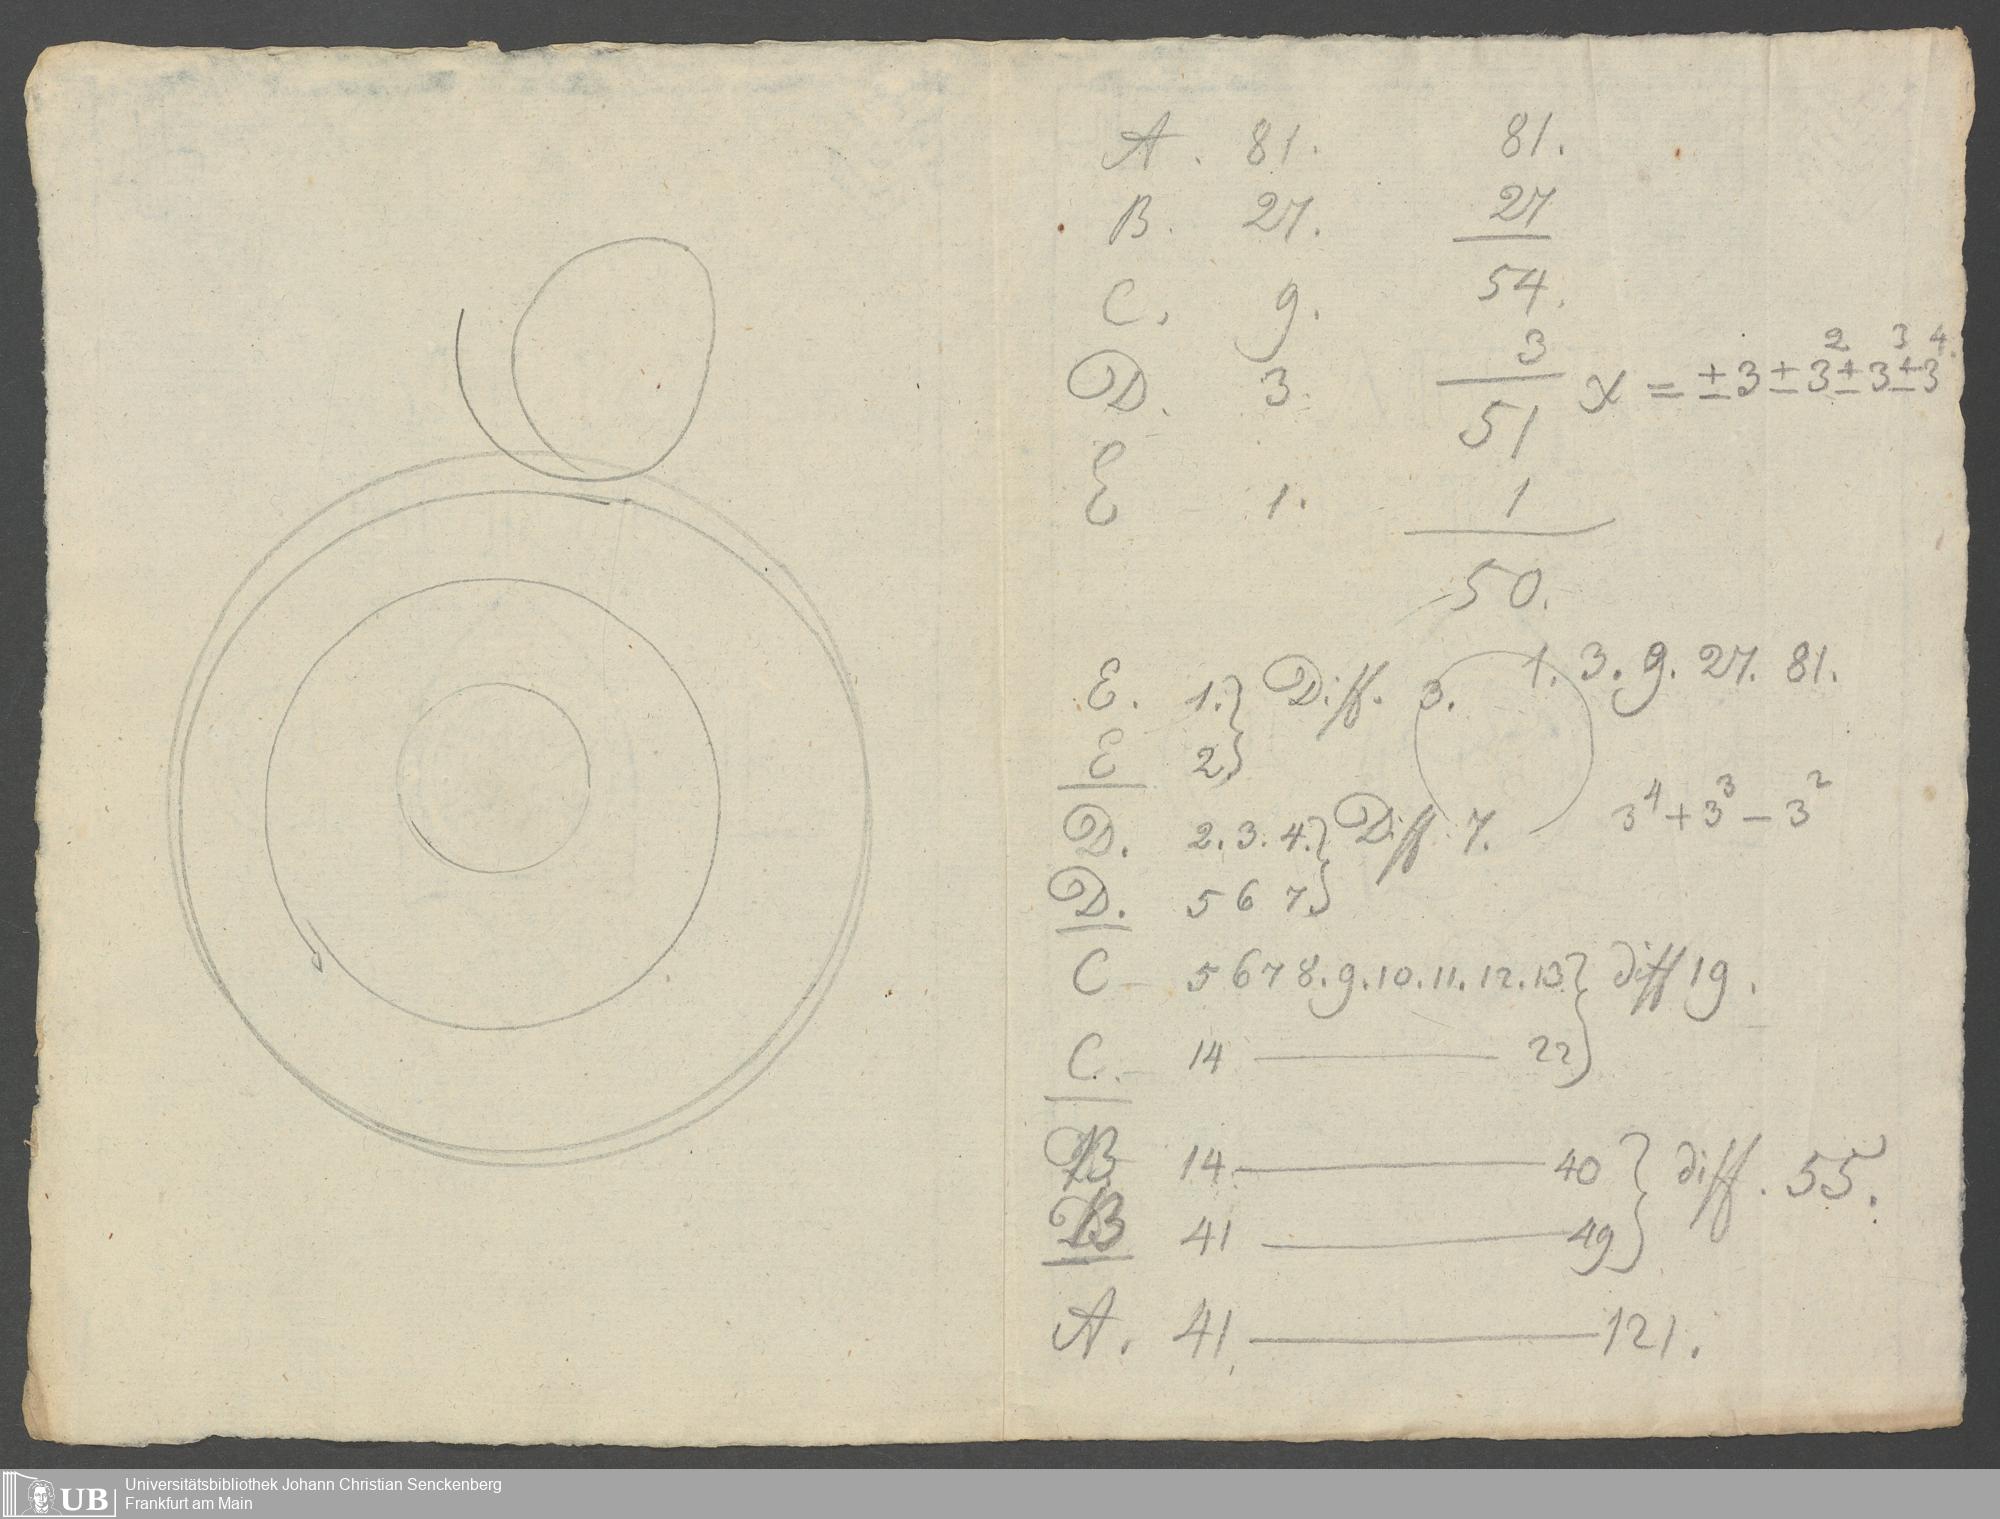 A. 81. 81.
B. 27. 27
C. 9. 54.
D. 3. 3
51 x = ±3±3²±3³±3⁴.
E 1. 1
50.
1. 3. 9. 27. 81.
E. 1.} Diff. 3.
E 2}
3⁴+3³−3²
D. 2. 3. 4.} Diff. 7.
D. 5 6 7}
C 5 6 7 8. 9. 10. 11. 12. 13} diff 19.
C. 14 — 22}
B 14 — 40} diff. 55.
B 41 — 49}
A. 41. — 121.
UB Universitätsbibliothek Johann Christian Senckenberg
Frankfurt am Main